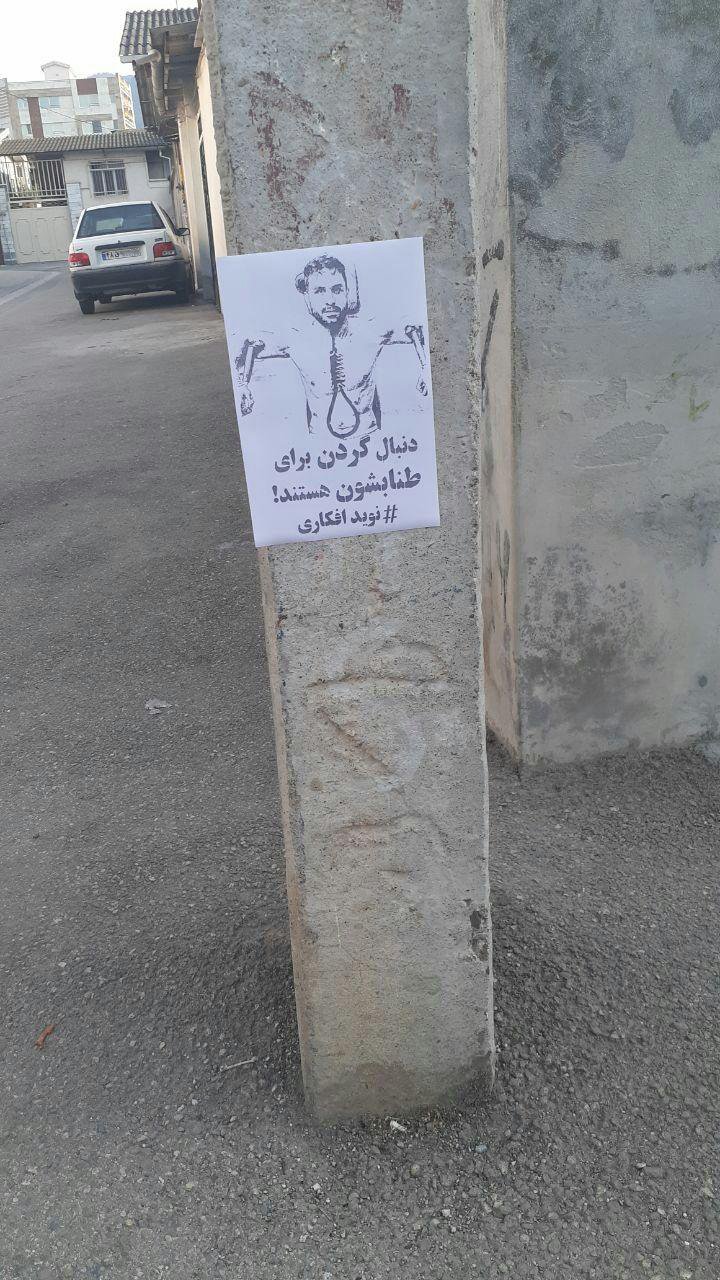 دنبال گردن برای
طنابشون هستند!
#نوید افکاری